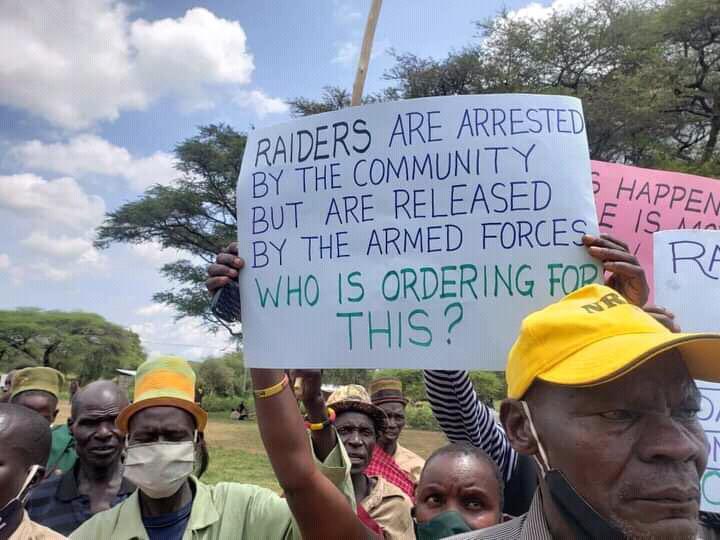 RAIDERS ARE ARRESTED
BY THE COMMUNITY
BUT ARE RELEASED
BY THE ARMED FORCES
WHO IS ORDERING FOR
THIS?
S HAPPEN
E IS MO
RA
NR